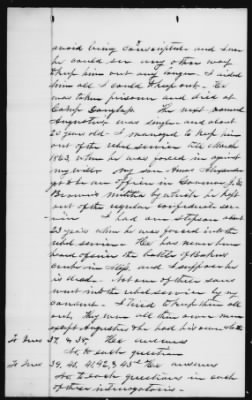 avoid being conscripted and I saw
he could see any other way
to keep him out any longer. I aided
him all I could to keep out. He
was taken prisoner and died at
Camp Douglas. The next named
Augustus was single and about
20 years old. I managed to keep him
out of the rebel service till March
1863, when he was forced in against
my will. My son Amos Alexander
got to be an officer in Governor
Brown's militia by which he kept
out of the regular confederate ser-
vice. I had one stepson about
23 years when he was forced into the
rebel service. He has never been
heard of since the battle of Bakers
creek in Miss. and I suppose he
is dead. Not one of these sons
went into the rebel service by my
consent. I tried to keep them all
out. They were all their own men
except Augustus & he had his own
To Inters 37 & 38. He answers
No, to each question
To Inters 39, 40, 41, 42, & 43d He answers
No to each questions in each
of these interrogatories.